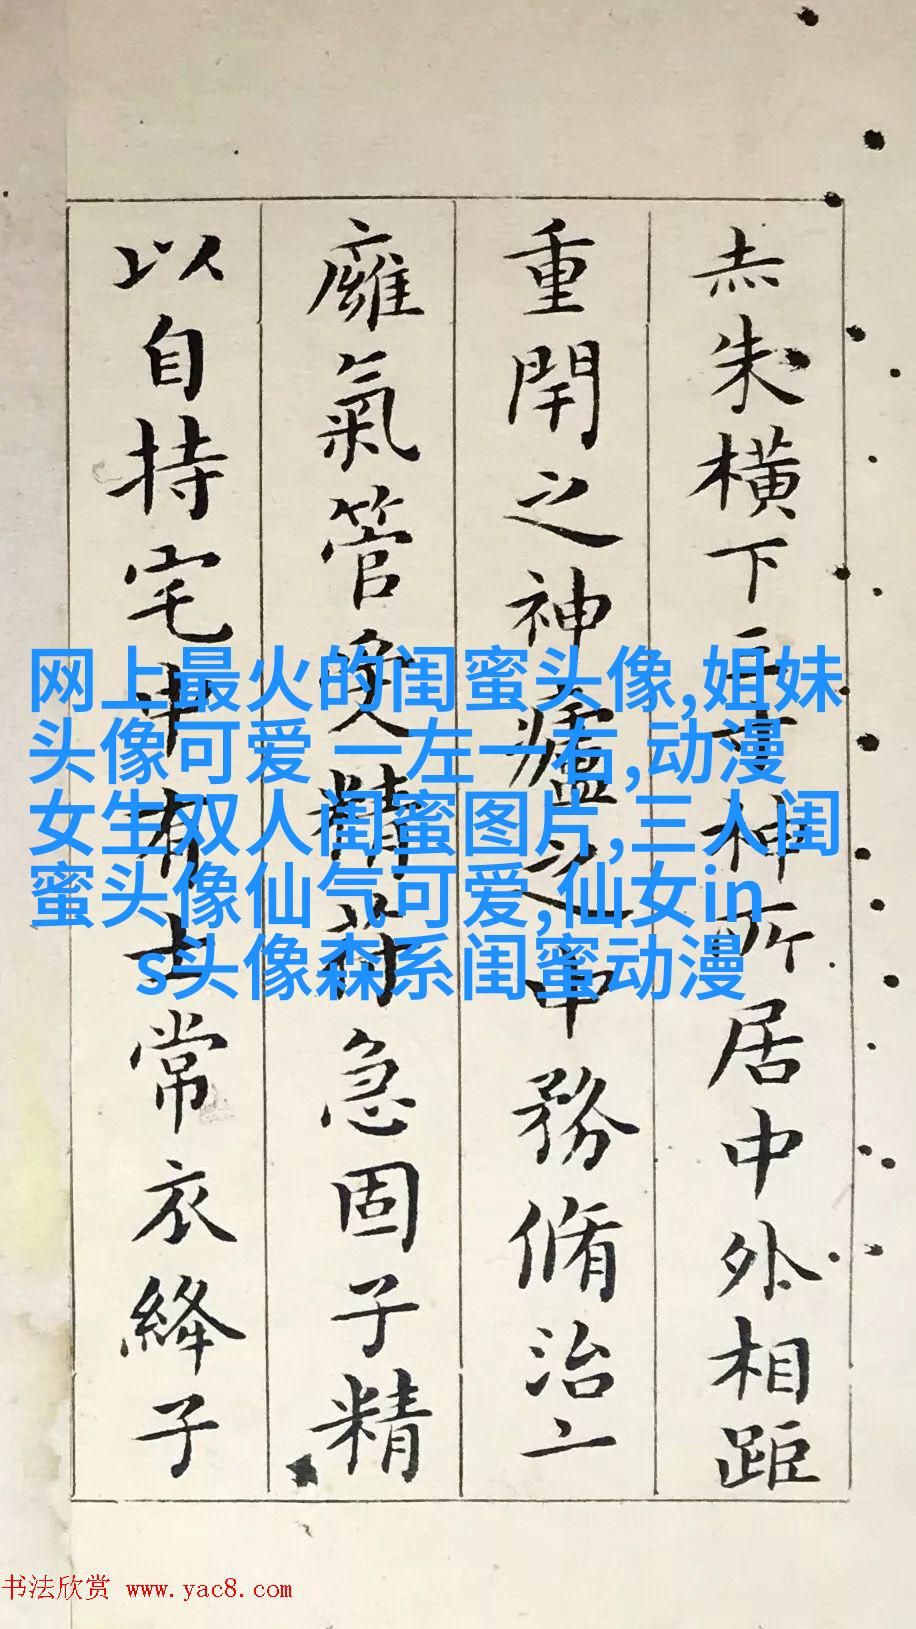 赤朱橫下三寸神所居中外相距
重閇之神廬之中務脩治玄
廱氣管受精苻急固子精
以自持宅中有士常衣絳子
网上最火的闺蜜头像,姐妹
头像可爱 一左一右,动漫
女生双人闺蜜图片,三人闺
蜜头像仙气可爱,仙女in
s头像森系闺蜜动漫
书法欣赏 www.yac8.com